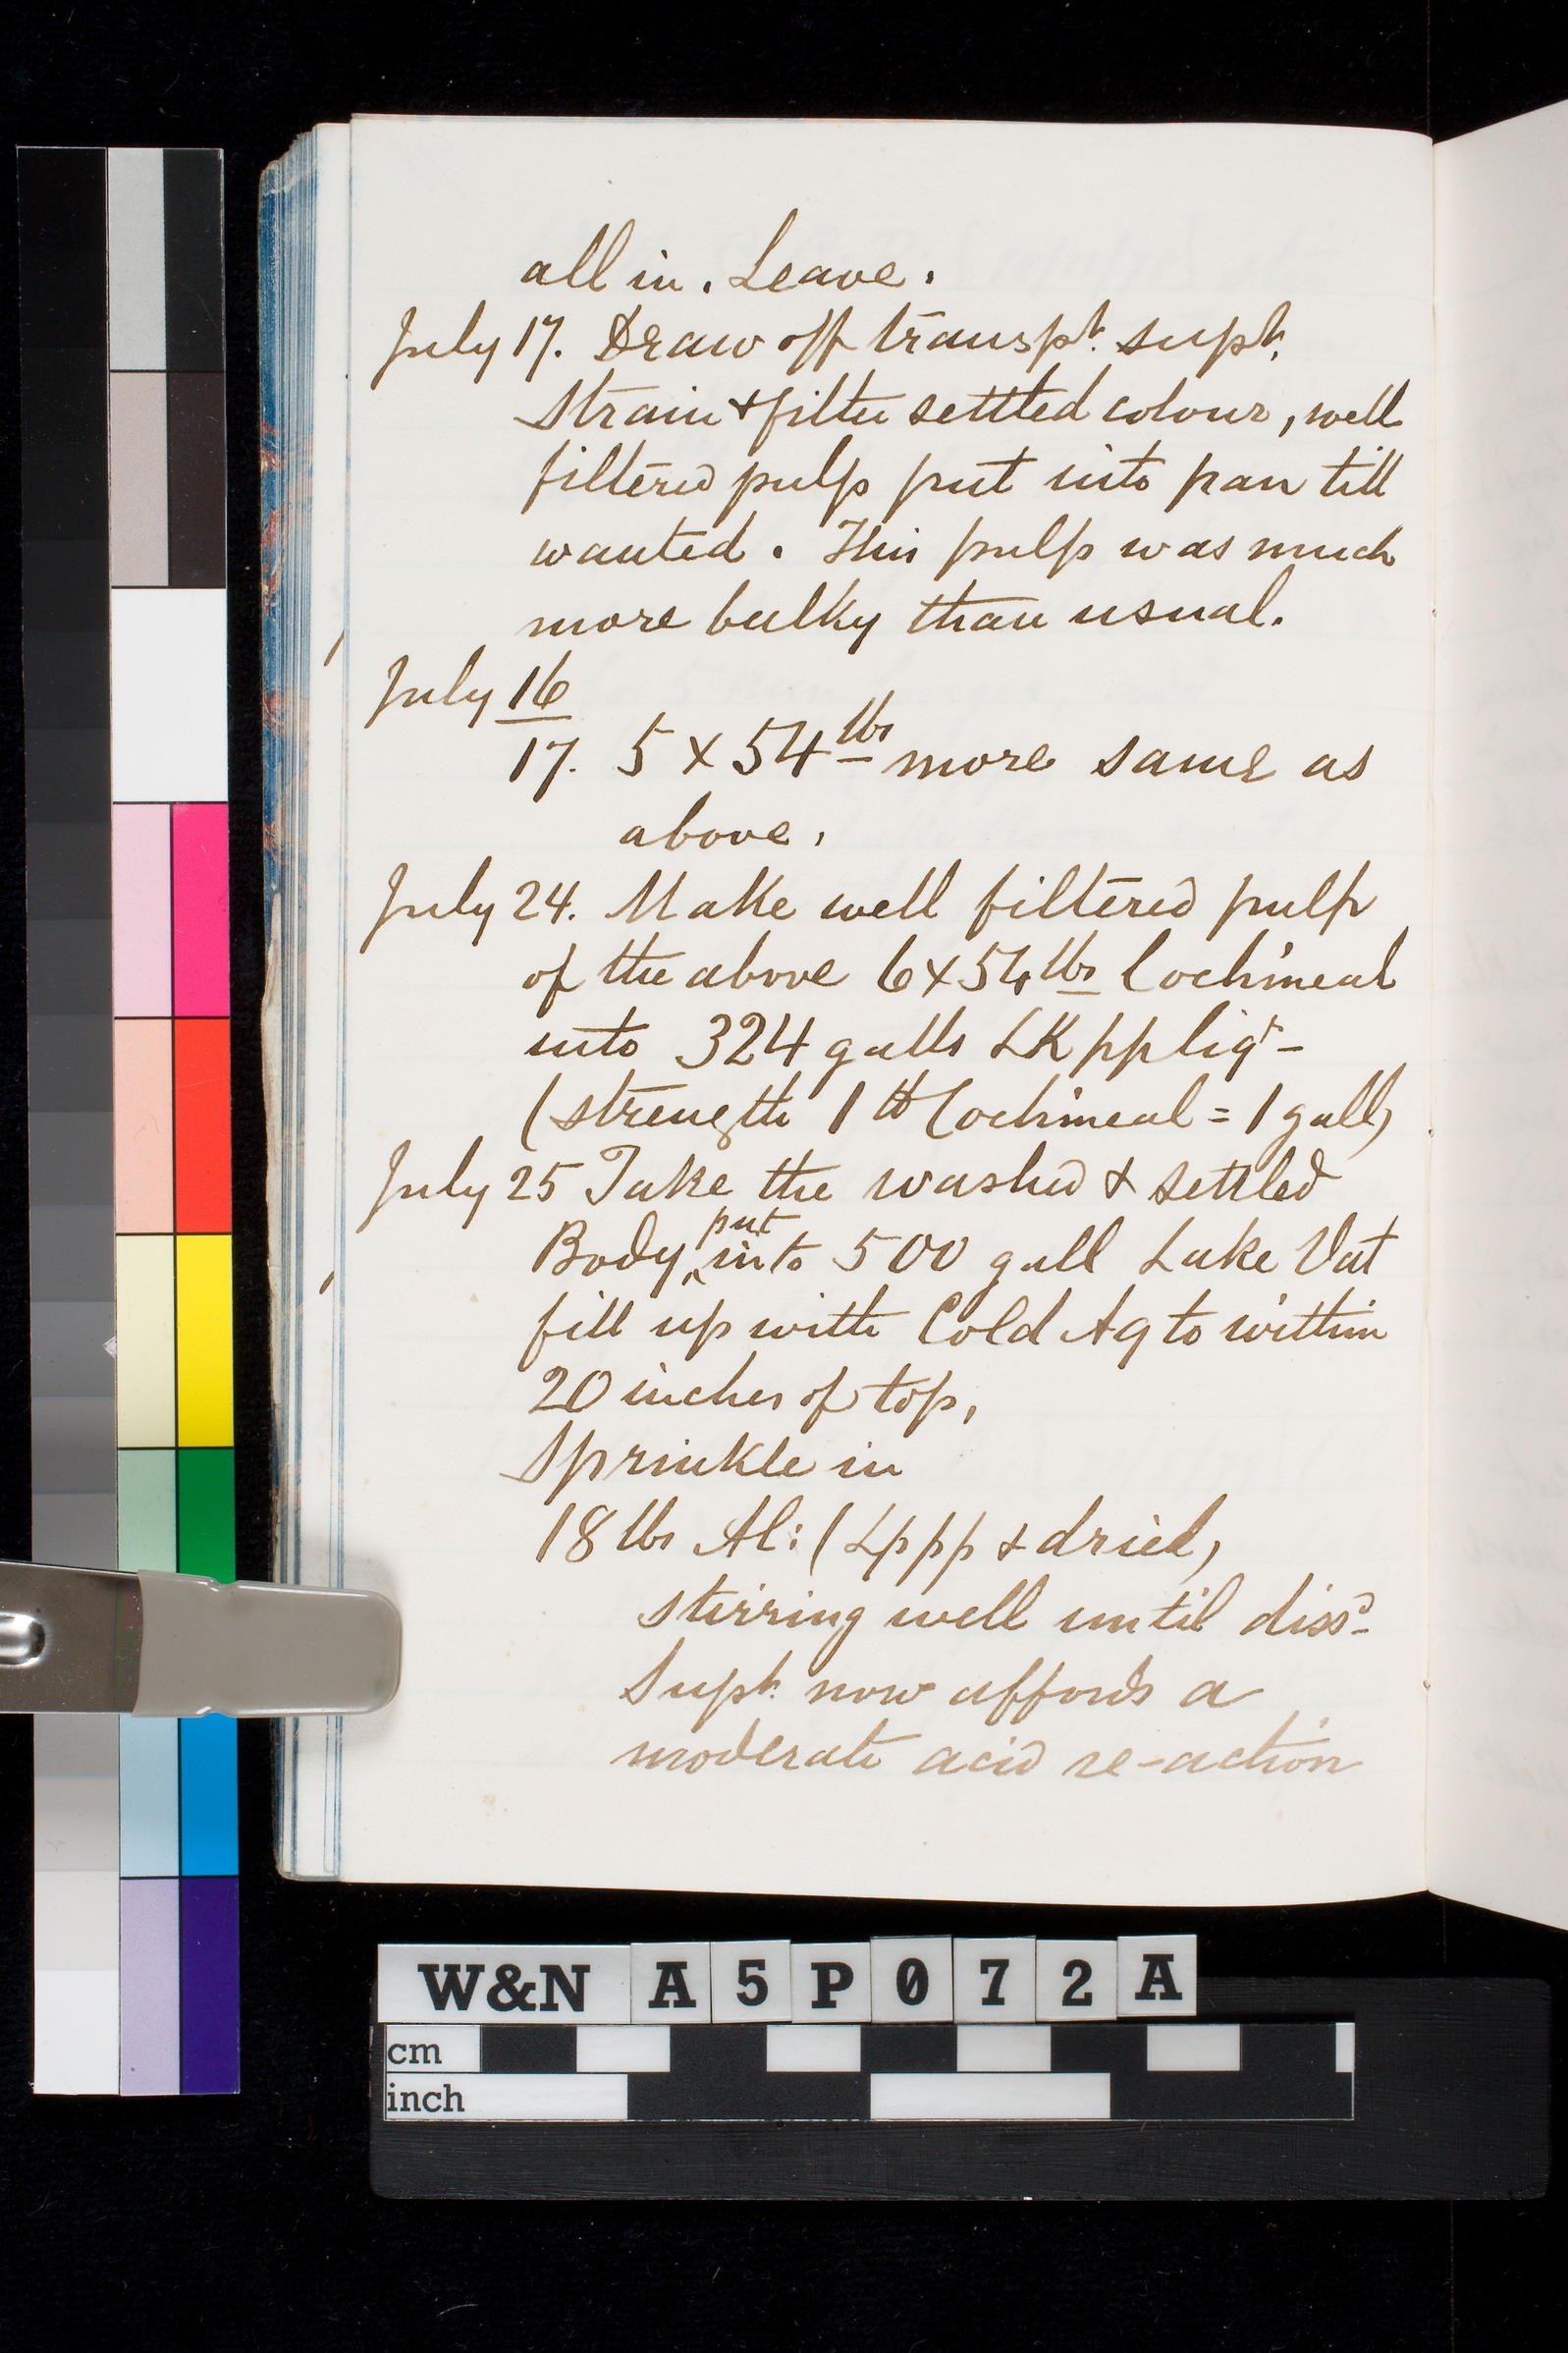 all in. Leave.
July 17. Draw off transpt. supt.
Strain & filter settled colour, well
filtered pulp put into pan till
wanted. This pulp was much
more bulky than usual.
July 16
17. 5 x 54 lbs more same as
above.
July 24. Make well filtered pulp
of the above 6 x 54 lbs Cochineal
into 324 galls LK pp liqr
(strength 1 lb Cochineal = 1 gall)
July 25 Take the washed & settled
put
Body, into 500 gall Lake Vat
fill up with Cold Aq to within
20 inches of top,
Sprinkle in
18 lbs Al: (Lppp & dried)
stirring well until dissd
Supt. now affords a
moderate acid re-action
W&N A5P072A
cm
inch